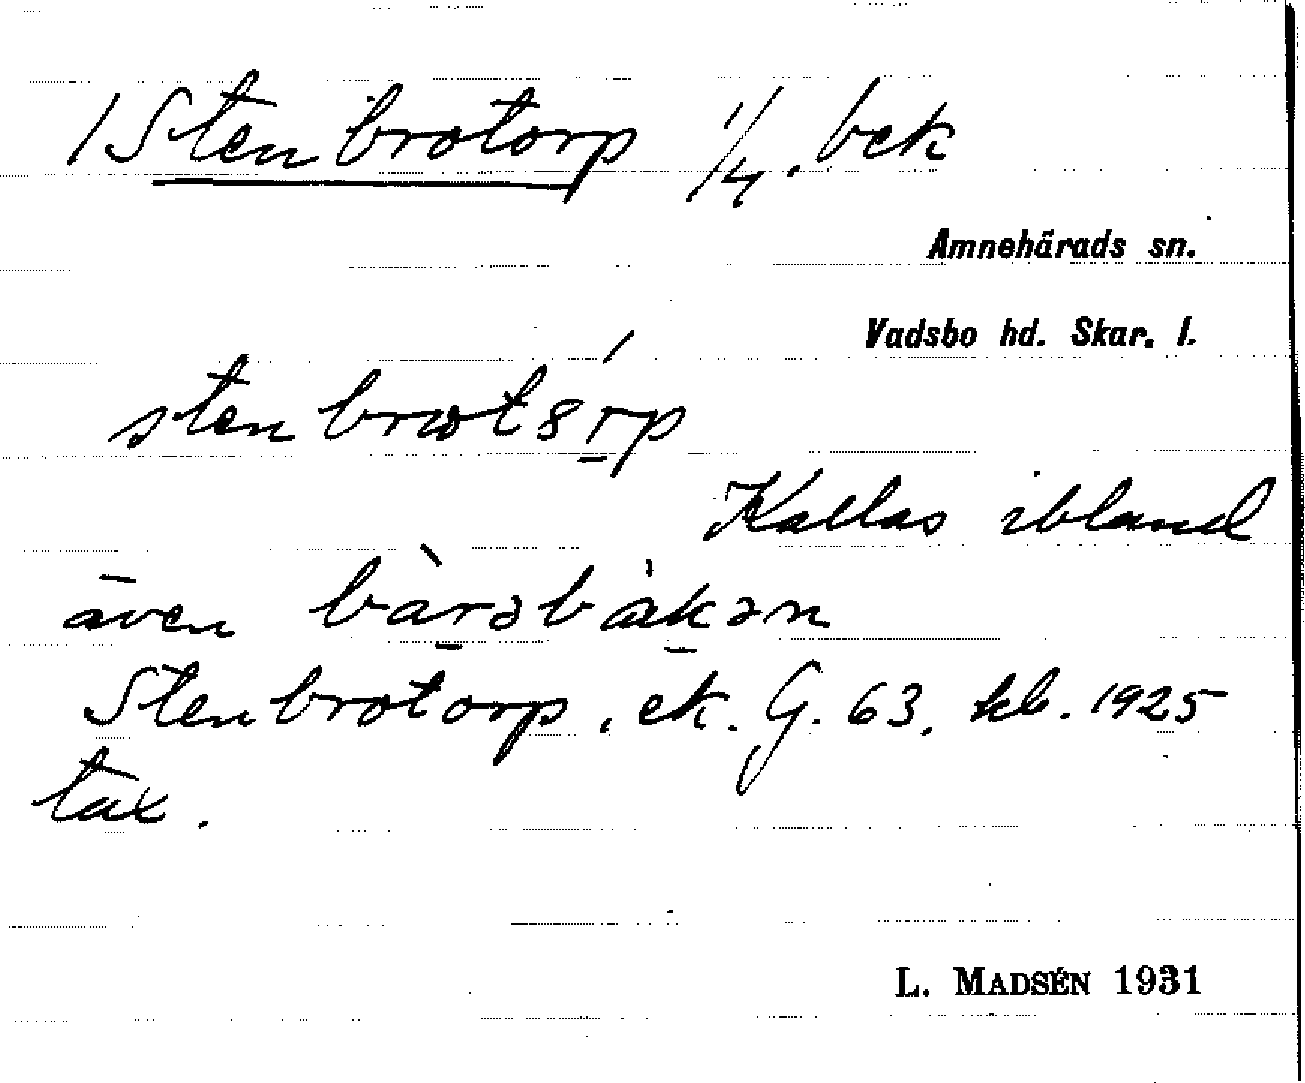 / Stenbrotorp 1/4. bek
Amnehärads sn.
Vadsbo hd. Skar. l.
stenbrωt8rp
Kallas ibland
även bàrəbåkən
Stenbrotorp. ek. G. 63. kb. 1925
tax.
L. MADSÉN 1931